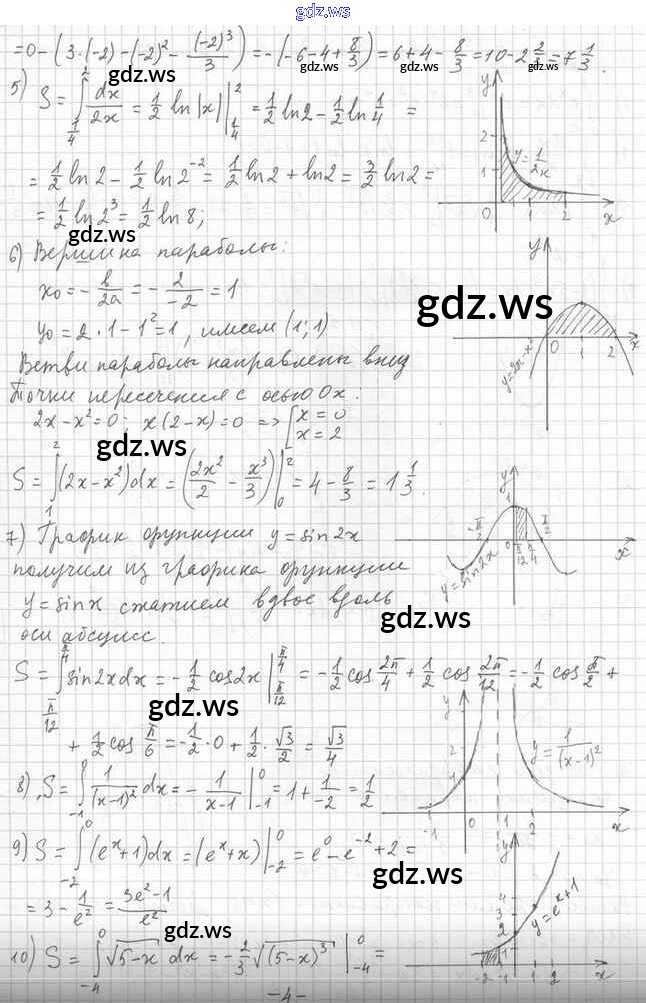 gdz.ws
= 0 - (3·(-2) - (-2)² - (-2)³/3) = -(-6 - 4 + 8/3) = 6 + 4 - 8/3 = 10 - 2 2/3 = 7 1/3.
gdz.ws gdz.ws gdz.ws
5) S = ∫_{1/4}^{2} dx/2x = 1/2 ln|x| |_{1/4}^{2} = 1/2 ln2 - 1/2 ln 1/4 =
= 1/2 ln2 - 1/2 ln2⁻² = 1/2 ln2 + ln2 = 3/2 ln2 =
= 1/2 ln2³ = 1/2 ln8;
gdz.ws
y
2
1
y = 1/2x
0 1 2 x
6) Вершина параболы:
x₀ = -b/2a = -2/-2 = 1
y₀ = 2·1 - 1² = 1, имеем (1; 1)
gdz.ws
Ветви параболы направлены вниз
Точки пересечения с осью Ox:
2x - x² = 0; x(2 - x) = 0 => [x = 0
x = 2
gdz.ws
y
0 1 2 x
y = 2x - x²
S = ∫_{1}^{2} (2x - x²)dx = (2x²/2 - x³/3)|_{0}^{2} = 4 - 8/3 = 1 1/3.
7) График функции y = sin2x
получим из графика функции
y = sinx сжатием вдвое вдоль
оси абсцисс.
gdz.ws
y
1
-π/2 0 π/12 π/4 π/2 x
y = sin2x
S = ∫_{π/12}^{π/4} sin2xdx = -1/2 cos2x |_{π/12}^{π/4} = -1/2 cos 2π/4 + 1/2 cos 2π/12 = -1/2 cos π/2 +
gdz.ws
+ 1/2 cos π/6 = -1/2·0 + 1/2·√3/2 = √3/4
8) S = ∫_{-1}^{0} 1/(x-1)² dx = -1/(x-1) |_{-1}^{0} = 1 + 1/-2 = 1/2
y
2
1
y = 1/(x-1)²
-1 0 1 2 x
9) S = ∫_{-2}^{0} (eˣ+1)dx = (eˣ+x)|_{-2}^{0} = e⁰ - e⁻² + 2 =
gdz.ws
= 3 - 1/e² = 3e²-1/e²
gdz.ws
y
4
3
2
1
y = eˣ+1
-2 -1 1 2 x
10) S = ∫_{-4}^{0} √(5-x) dx = -2/3 √((5-x)³) |_{-4}^{0} =
-4-
gdz.ws